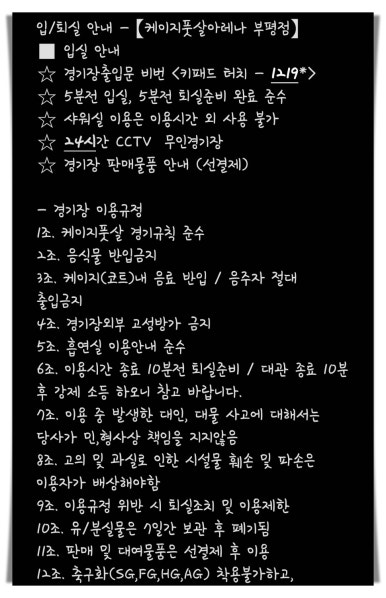 입/퇴실 안내 - 【케이지풋살아레나 부평점】
■ 입실 안내
☆ 경기장출입문 비번 <키패드 터치 - 1219*>
☆ 5분전 입실, 5분전 퇴실준비 완료 준수
☆ 샤워실 이용은 이용시간 외 사용 불가
☆ 24시간 CCTV 무인경기장
☆ 경기장 판매물품 안내 (선결제)
- 경기장 이용규정
1조. 케이지풋살 경기규칙 준수
2조. 음식물 반입금지
3조. 케이지(코트)내 음료 반입 / 음주자 절대
출입금지
4조. 경기장외부 고성방가 금지
5조. 흡연실 이용안내 준수
6조. 이용시간 종료 10분전 퇴실준비 / 대관 종료 10분
후 강제 소등 하오니 참고 바랍니다.
7조. 이용 중 발생한 대인, 대물 사고에 대해서는
당사가 민,형사상 책임을 지지않음
8조. 고의 및 과실로 인한 시설물 훼손 및 파손은
이용자가 배상해야함
9조. 이용규정 위반 시 퇴실조치 및 이용제한
10조. 유/분실물은 7일간 보관 후 폐기됨
11조. 판매 및 대여물품은 선결제 후 이용
12조. 축구화(SG,FG,HG,AG) 착용불가하고,